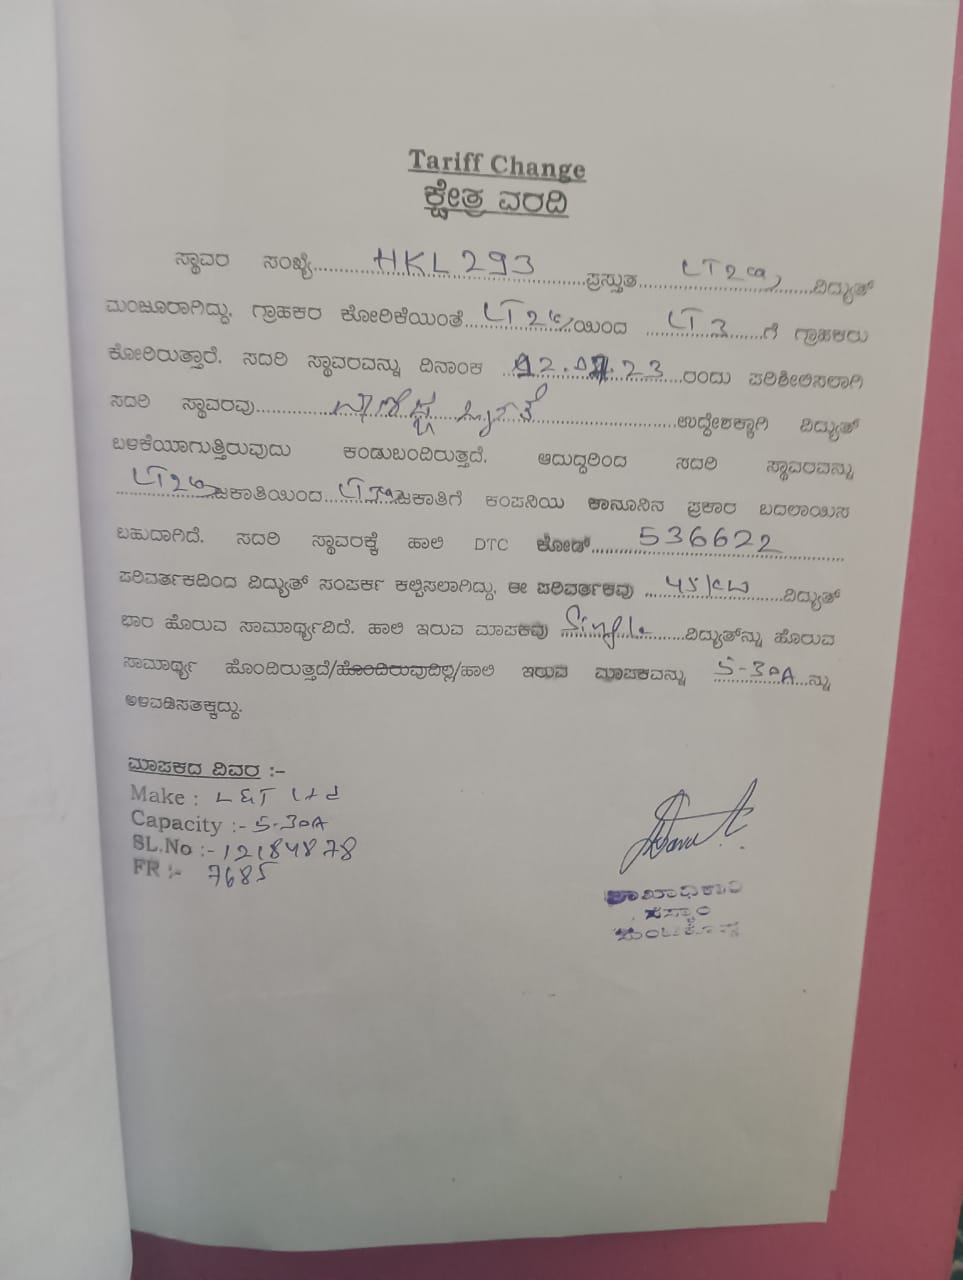 Tariff Change
ಕ್ಷೇತ್ರ ವರದಿ
ಸ್ಥಾವರ ಸಂಖ್ಯೆ HKL 293 ಪ್ರಸ್ತುತ LT2 ವಿದ್ಯುತ್
ಮಂಜೂರಾಗಿದ್ದು, ಗ್ರಾಹಕರ ಕೋರಿಕೆಯಂತೆ LT2 ಯಿಂದ LT3 ಗೆ ಗ್ರಾಹಕರು
ಕೋರಿರುತ್ತಾರೆ. ಸದರಿ ಸ್ಥಾವರವನ್ನು ದಿನಾಂಕ .23 ರಂದು ಪರಿಶೀಲಿಸಲಾಗಿ
ಸದರಿ ಸ್ಥಾವರವು ಉದ್ದೇಶಕ್ಕಾಗಿ ವಿದ್ಯುತ್
ಬಳಕೆಯಾಗುತ್ತಿರುವುದು ಕಂಡುಬಂದಿರುತ್ತದೆ. ಆದುದ್ದರಿಂದ ಸದರಿ ಸ್ಥಾವರವನ್ನು
LT2 ಜಕಾತಿಯಿಂದ ಜಕಾತಿಗೆ ಕಂಪನಿಯ ಕಾನೂನಿನ ಪ್ರಕಾರ ಬದಲಾಯಿಸ
ಬಹುದಾಗಿದೆ. ಸದರಿ ಸ್ಥಾವರಕ್ಕೆ ಹಾಲಿ DTC ಕೋಡ್ 536622
ಪರಿವರ್ತಕದಿಂದ ವಿದ್ಯುತ್ ಸಂಪರ್ಕ ಕಲ್ಪಿಸಲಾಗಿದ್ದು, ಈ ಪರಿವರ್ತಕವು ವಿದ್ಯುತ್
ಭಾರ ಹೊರುವ ಸಾಮಾರ್ಥ್ಯವಿದೆ. ಹಾಲಿ ಇರುವ ಮಾಪಕವು Single ವಿದ್ಯುತ್‌ನ್ನು ಹೊರುವ
ಸಾಮಾರ್ಥ್ಯ ಹೊಂದಿರುತ್ತದೆ/ಹೊಂದಿರುವುದಿಲ್ಲ/ಹಾಲಿ ಇರುವ ಮಾಪಕವನ್ನು 5-30A ನ್ನು
ಅಳವಡಿಸತಕ್ಕದ್ದು.
ಮಾಪಕದ ವಿವರ :-
Make : L&T Ltd
Capacity :- 5-30A
SL.No :- 12184878
FR :- 7685
ಶಾಖಾಧಿಕಾರಿ